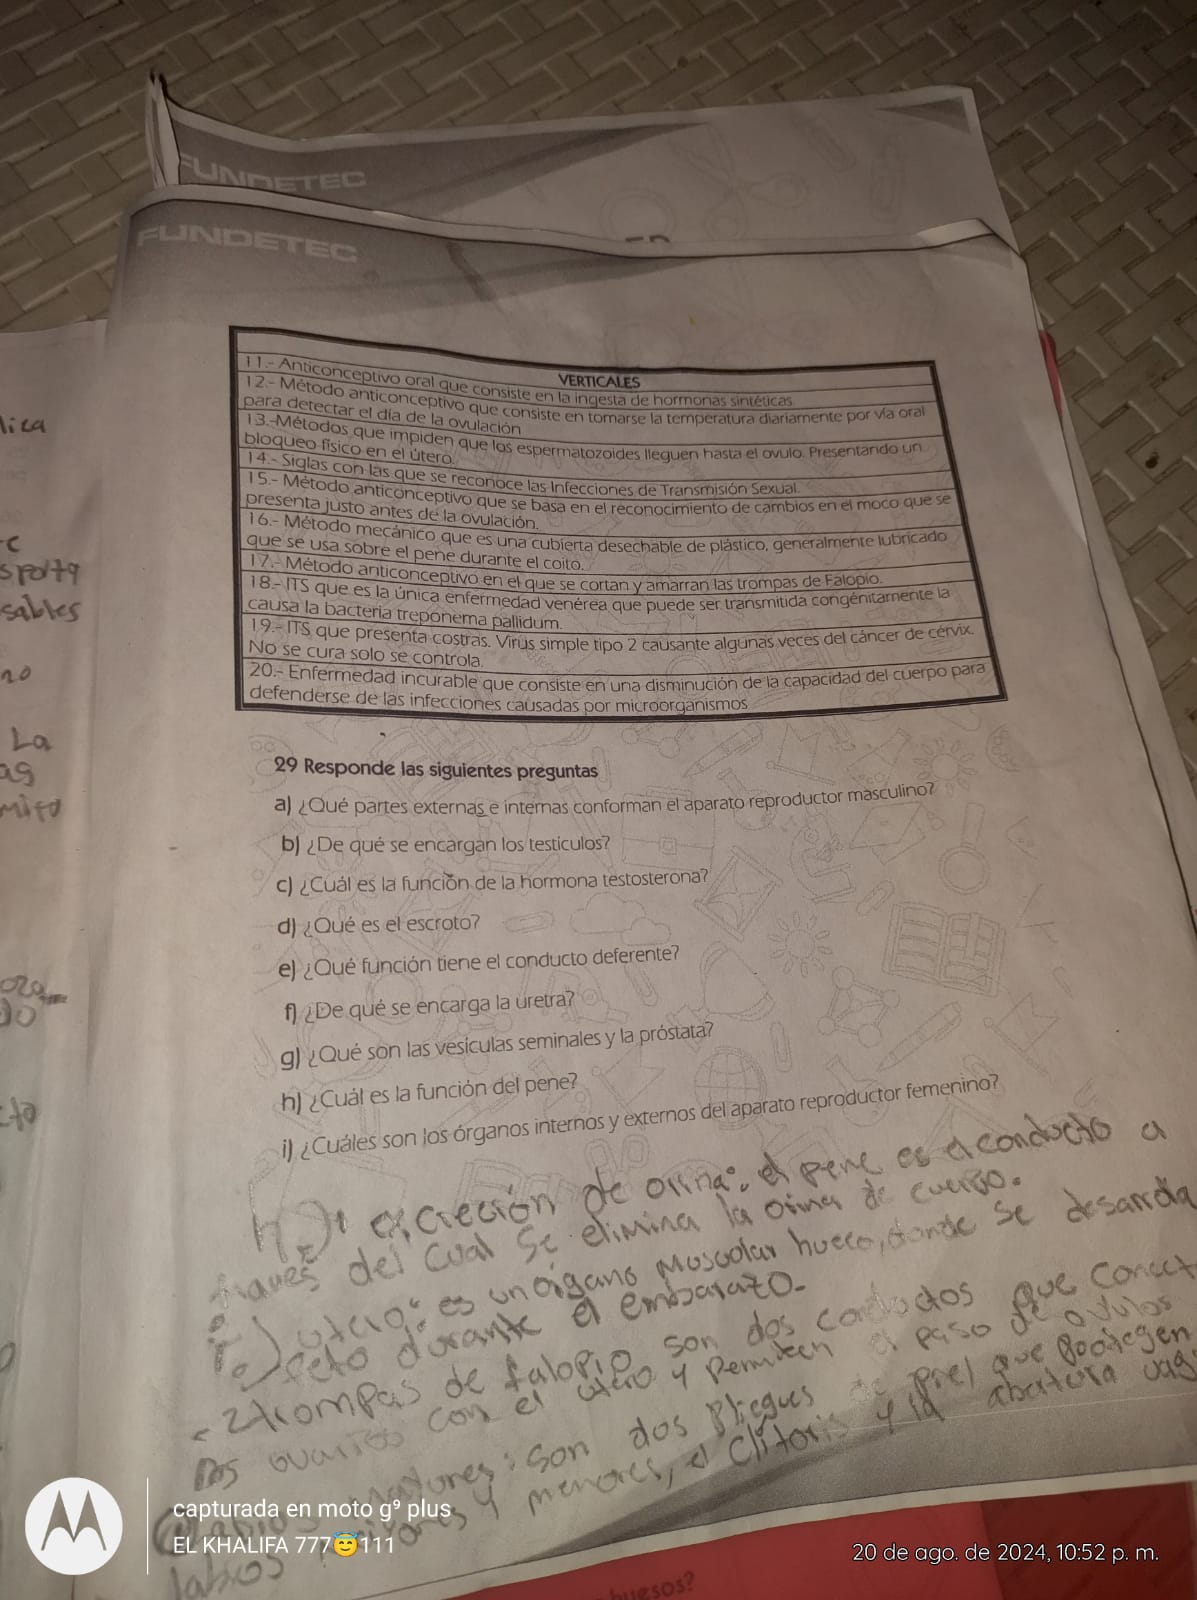 FUNDETEC
FUNDETEC
VERTICALES
11.- Anticonceptivo oral que consiste en la ingesta de hormonas sintéticas
12.- Método anticonceptivo que consiste en tomarse la temperatura diariamente por vía oral
para detectar el día de la ovulación
13.-Métodos que impiden que los espermatozoides lleguen hasta el ovulo. Presentando un
bloqueo físico en el útero.
14.- Siglas con las que se reconoce las Infecciones de Transmisión Sexual
15.- Método anticonceptivo que se basa en el reconocimiento de cambios en el moco que se
presenta justo antes de la ovulación.
16.- Método mecánico que es una cubierta desechable de plástico, generalmente lubricado
que se usa sobre el pene durante el coito.
17.- Método anticonceptivo en el que se cortan y amarran las trompas de Falopio.
18.- ITS que es la única enfermedad venérea que puede ser transmitida congénitamente la
causa la bacteria treponema pallidum.
19.- ITS que presenta costras. Virus simple tipo 2 causante algunas veces del cáncer de cérvix.
No se cura solo se controla.
20.- Enfermedad incurable que consiste en una disminución de la capacidad del cuerpo para
defenderse de las infecciones causadas por microorganismos
lica
sporta
sables
no
La
as
29 Responde las siguientes preguntas
a) ¿Qué partes externas e internas conforman el aparato reproductor masculino?
b) ¿De qué se encargan los testículos?
c) ¿Cuál es la función de la hormona testosterona?
d) ¿Qué es el escroto?
e) ¿Qué función tiene el conducto deferente?
f) ¿De qué se encarga la uretra?
g) ¿Qué son las vesículas seminales y la próstata?
h) ¿Cuál es la función del pene?
i) ¿Cuáles son los órganos internos y externos del aparato reproductor femenino?
h) excreción de orina: el pene es el conducto a
traves del cual se elimina la orina de cuerpo.
i) utero: es un organo muscular hueco, donde se desarrolla
feto durante el embarazo.
- trompas de falopio son dos conductos que conect
los ovarios con el utero y permiten el paso de ovulos
mayores: son dos pliegues de piel que protegen
labios mayores y menores, el clitoris y la abertura vag
huesos?
capturada en moto g⁹ plus
EL KHALIFA 777😇111
20 de ago. de 2024, 10:52 p. m.